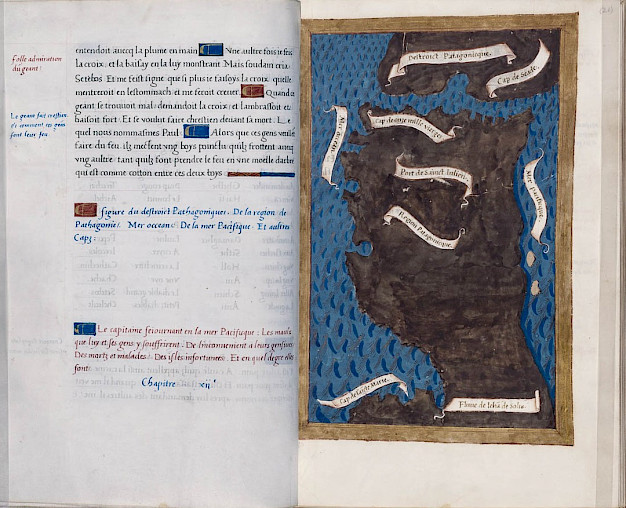 Folle admiration
du geant!
entendoit auecq la plume en main Vne aultre fois ie feis
la croix: et la baisay en la luy monstrant Mais soudain cria
Setebos Et me feist signe que si plus ie faisoys la croix: quelle
mentreroit en lestommach: et me feroit creuer Quand ce
geant se trouuoit mal: demandoit la croix: et lambrassoit et
baisoit fort: Et se voulut faire chrestien deuant sa mort. Le
quel nous nommasmes Paul. Alors que ces gens veullent
faire du feu. ilz mectent vng boys poinctu quilz frottent auecq
vng aultre: tant quilz font prendre le feu en vne moelle darbre
qui est comme cotton entre ces deux boys
Le geant fait chrestien
et comment ces gens
font leur feu.
figure du destroict Pathagonique. De la region de
Pathagonie. Mer oceane. De la mer Pacifique. Et aultres
Caps:
Le capitaine seiournant en la mer Pacifique: Les maulx
que luy et ses gens y souffrirent. De leniuennement a leurs gensiues
Des mortz et malades. Des isles infortunees. Et en quel degre elles
sont
Chapitre xii
Destroict Patagonique.
Cap de Seade.
Mer occean.
Cap de unze mille vierges
Port de Sainct Iulien.
Mer Pacifique.
Region Patagonique.
Cap de saincte Marie.
Fleuue de Iehã de Solis.